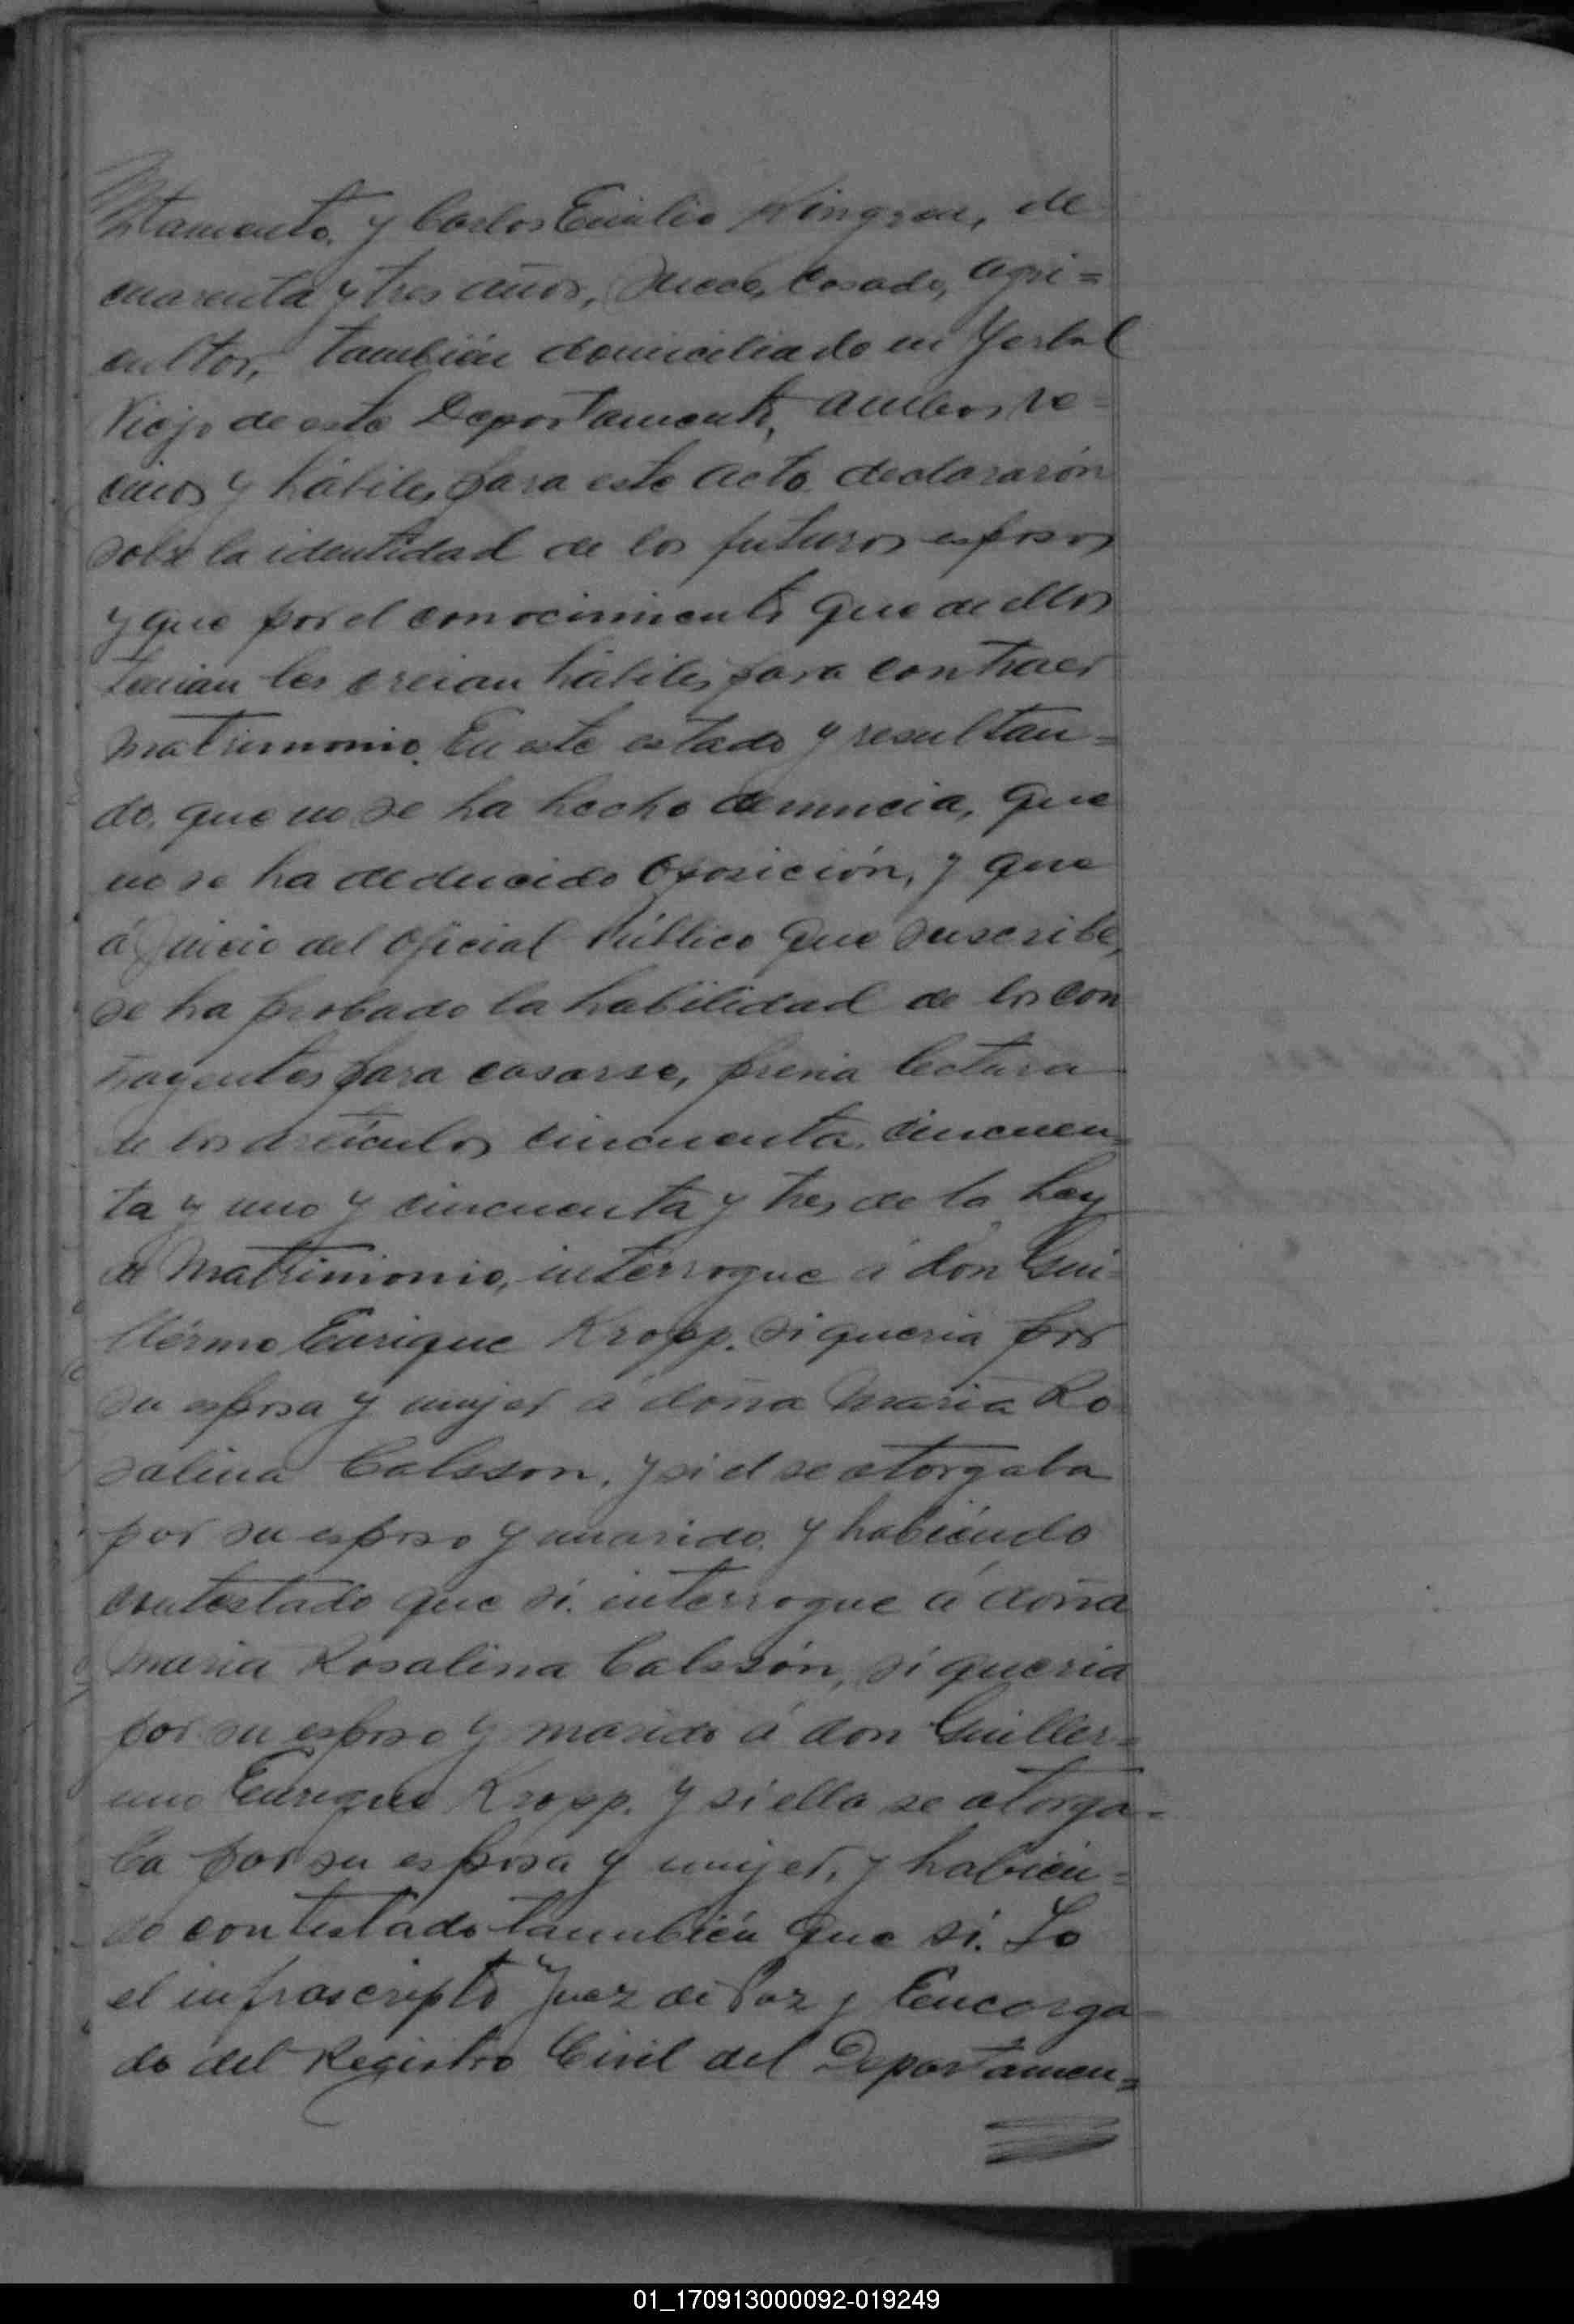 tamento, y Carlos Emilio Wingren, de
cuarenta y tres años, Sueco, Casado, agri=
cultor, también domiciliado en Yerbal
Viejo de este Departamento, ambos ve=
cinos y hábiles para este acto declararón
sobre la identidad de los futuros esposos
y que por el conocimiento que de ellos
tenian les creian hábiles para contraer
matrimonio. En este estado y resultan=
do, que no se ha hecho denuncia, que
no se ha deducido Oposición, y que
á Juicio del Oficial Público que suscribe,
se ha probado la habilidad de los con
trayentes para casarse, previa lectura
de los artículos cincuenta, cincuen=
ta y uno y cincuenta y tres de la Ley
de Matrimonio, interrogue á don Gui=
llérmo Enrique Kropp. si queria por
su esposa y mujer a doña Maria Ro
salina Calsson, y si el se otorgaba
por su esposo y marido, y habiéndo
contestado que si. interrogue á doña
Maria Rosalina Calssón, si queria
por su esposo y marido á don Guiller=
mo Enrique Kropp. y si ella se otorga=
ba por su esposa y mujer, y habién=
do contestado tammbién que si. Yo
el infrascripto Juez de Paz y Encarga=
do del Registro Civil del Departamen=
01_170913000092-019249